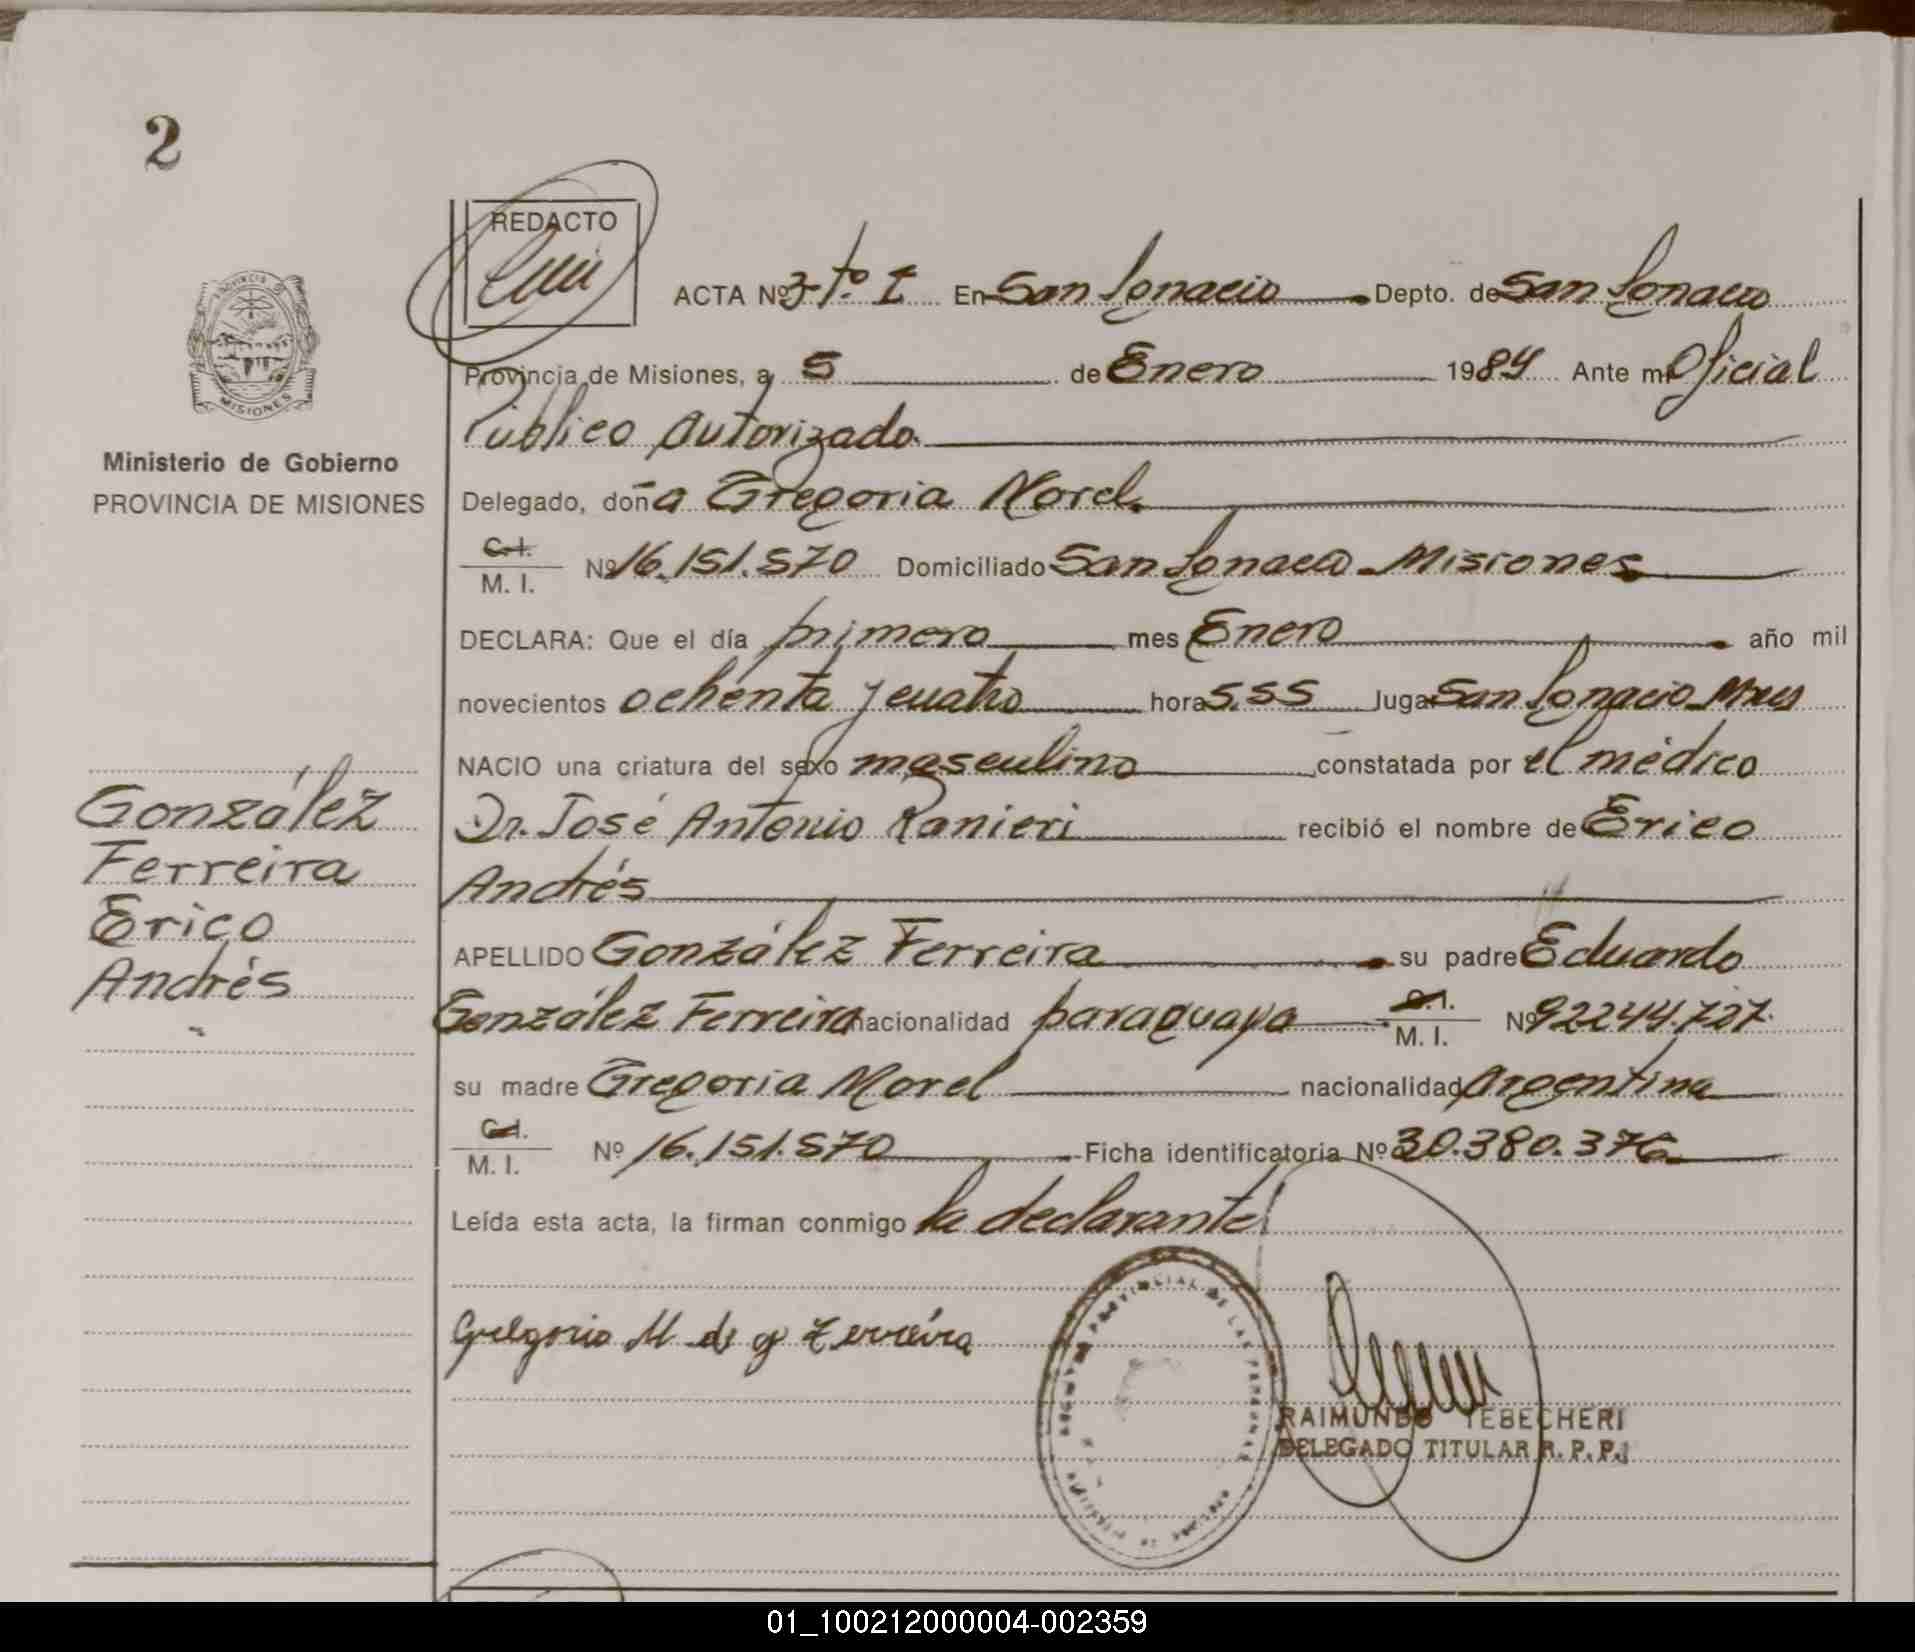 2
REDACTO
ACTA Nº 3-Tº I En San Ignacio Depto. de San Ignacio
Provincia de Misiones, a 5 de Enero 1984 Ante mí Oficial
Público Autorizado.
Delegado, doña Gregoria Morel.
C.I.
M. I. Nº 16.151.570 Domiciliado San Ignacio - Misiones
DECLARA: Que el día primero mes Enero año mil
novecientos ochenta y cuatro hora 5.55 lugar San Ignacio Mnes
NACIO una criatura del sexo masculino constatada por el médico
Dr. José Antonio Ranieri recibió el nombre de Erico
Andrés
APELLIDO González Ferreira su padre Eduardo
González Ferreira nacionalidad paraguaya C.I. M. I. Nº 92244.727.
su madre Gregoria Morel nacionalidad Argentina
C.I.
M. I. Nº 16.151.570 Ficha identificatoria Nº 30.380.376
Leída esta acta, la firman conmigo la declarante
Gregoria M de g Ferreira
RAIMUNDO TEBECHERI
DELEGADO TITULAR R. P. P.
PROVINCIA DE MISIONES
Ministerio de Gobierno
PROVINCIA DE MISIONES
González
Ferreira
Erico
Andrés
01_100212000004-002359